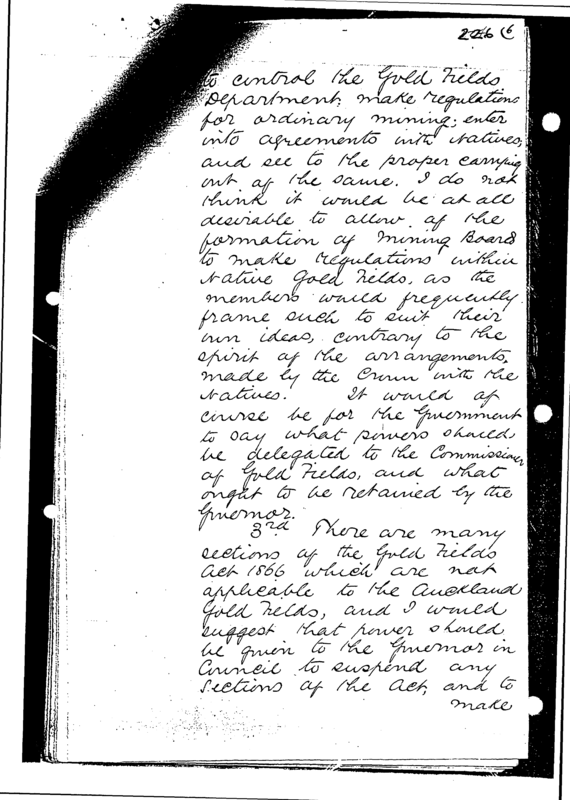 226 6
to control the Gold Fields
Department, make regulations
for ordinary mining; enter
into agreements with Natives,
and see to the proper carrying
out of the same. I do not
think it would be at all
desirable to allow of the
formation of Mining Boards
to make regulations within
Native Gold Fields, as the
members would frequently
frame such to suit their
own ideas, contrary to the
spirit of the arrangements,
made by the Crown with the
Natives. It would of
course be for the Government
to say what powers should
be delegated to the Commissioner
of Gold Fields, and what
ought to be retained by the
Governor.
3rd There are many
sections of the Gold Fields
Act 1866 which are not
applicable to the Auckland
Gold Fields, and I would
suggest that power should
be given to the Governor in
Council to suspend any
Sections of the Act, and to
make